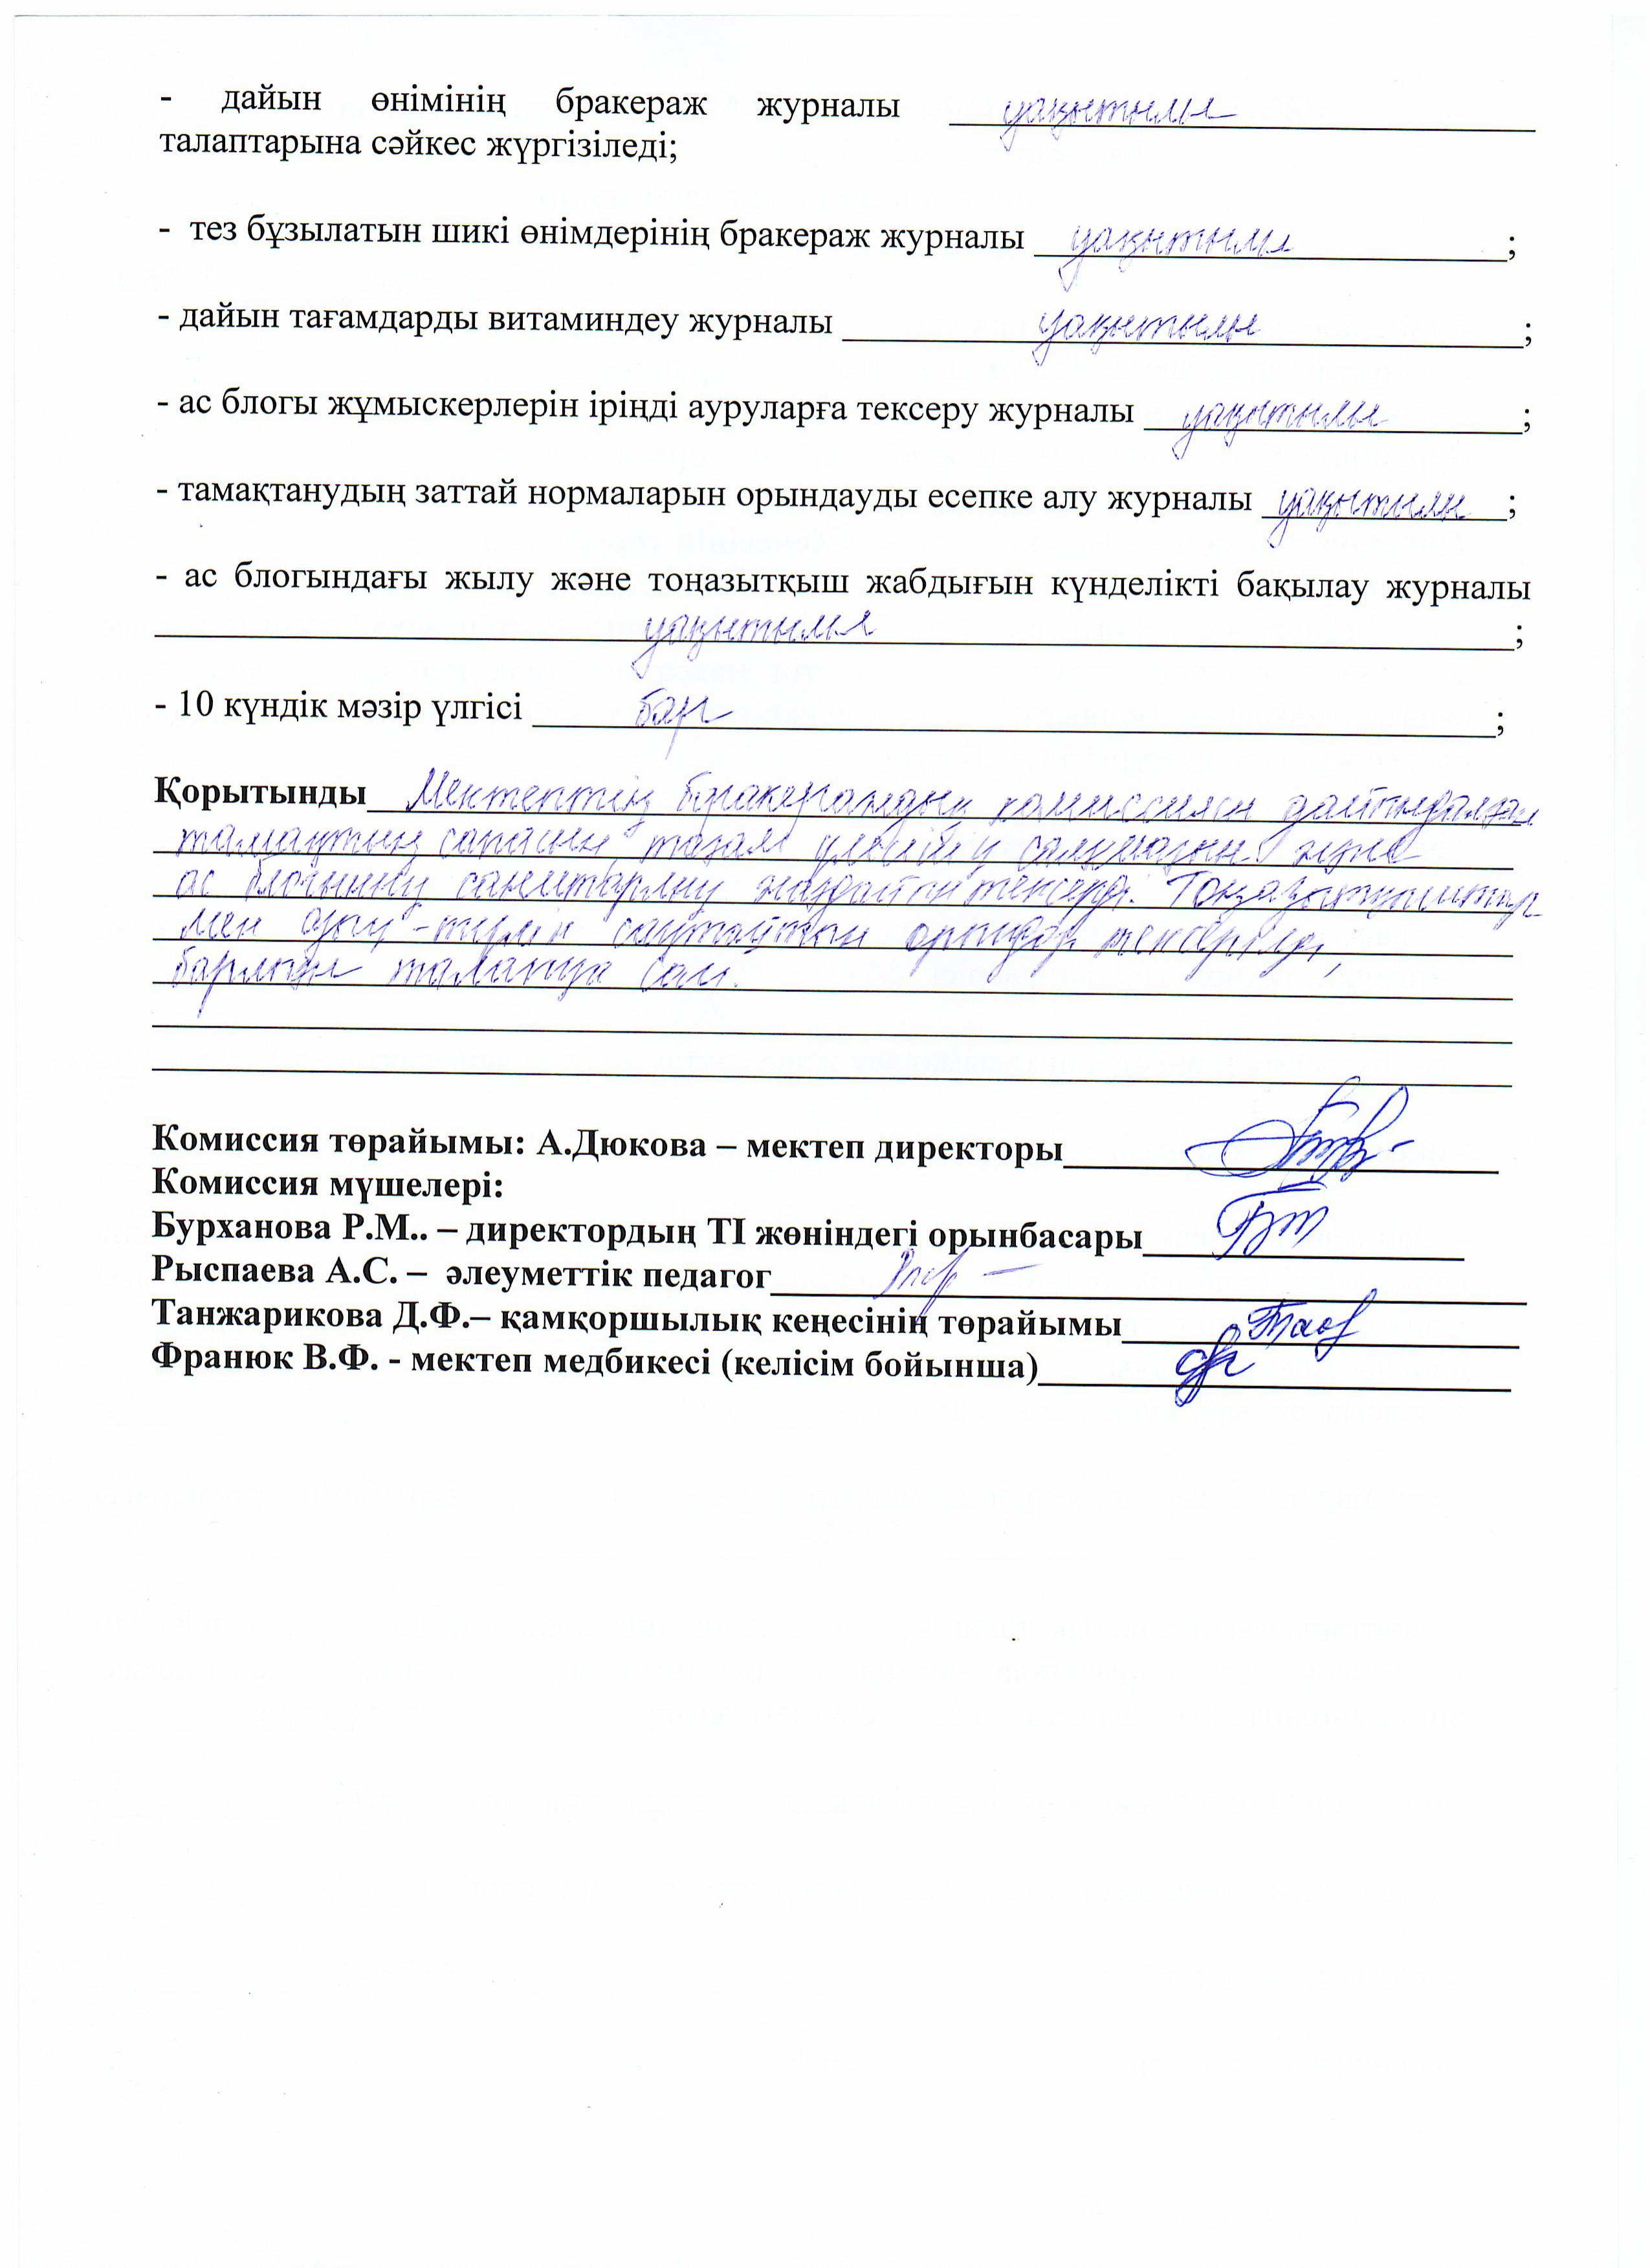 - дайын өнімінің бракераж журналы уақытылы
талаптарына сәйкес жүргізіледі;
- тез бұзылатын шикі өнімдерінің бракераж журналы уақытылы;
- дайын тағамдарды витаминдеу журналы уақытылы;
- ас блогы жұмыскерлерін іріңді ауруларға тексеру журналы уақытылы;
- тамақтанудың заттай нормаларын орындауды есепке алу журналы уақытылы;
- ас блогындағы жылу және тоңазытқыш жабдығын күнделікті бақылау журналы
уақытылы;
- 10 күндік мәзір үлгісі бар;
Қорытынды Мектептің бракераждық комиссиясы дайындалған
тамақтың сапасын тағам үлесінің салмағын және
ас блогының санитарлық жағдайын тексерді. Тоңазытқыштар
мен азық-түлік сақтайтын орындар тексерілді,
барлығы талапқа сай.
Комиссия төрайымы: А.Дюкова – мектеп директоры
Комиссия мүшелері:
Бурханова Р.М.. – директордың ТІ жөніндегі орынбасары
Рыспаева А.С. – әлеуметтік педагог
Танжарикова Д.Ф.– қамқоршылық кеңесінің төрайымы
Франюк В.Ф. - мектеп медбикесі (келісім бойынша)